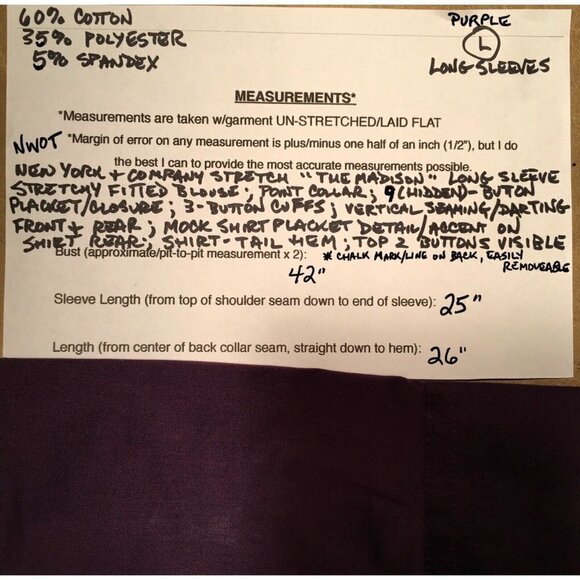 60% COTTON
35% POLYESTER
5% SPANDEX
PURPLE
L
LONG SLEEVES
MEASUREMENTS*
*Measurements are taken w/garment UN-STRETCHED/LAID FLAT
NWOT *Margin of error on any measurement is plus/minus one half of an inch (1/2"), but I do
the best I can to provide the most accurate measurements possible.
NEW YORK + COMPANY STRETCH "THE MADISON" LONG SLEEVE
STRETCHY FITTED BLOUSE; POINT COLLAR; 9 (HIDDEN)-BUTTON
PLACKET/CLOSURE; 3-BUTTON CUFFS; VERTICAL SEAMING/DARTING
FRONT + REAR; MOCK SHIRT PLACKET DETAIL/ACCENT ON
SHIRT REAR; SHIRT-TAIL HEM; TOP 2 BUTTONS VISIBLE
Bust (approximate/pit-to-pit measurement x 2): * CHALK MARK/LINE ON BACK, EASILY
REMOVEABLE
42"
Sleeve Length (from top of shoulder seam down to end of sleeve): 25"
Length (from center of back collar seam, straight down to hem): 26"